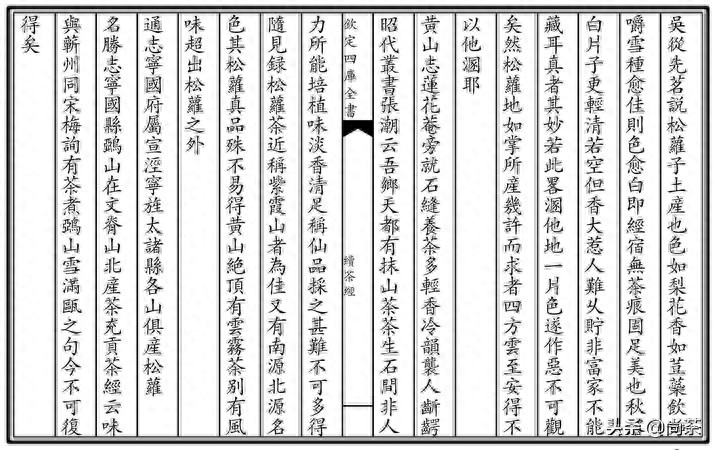 吳從先茗説松蘿子土産也色如梨花香如荳蘂飲如
嚼雪種愈佳則色愈白即經宿無茶痕固足美也秋露
白片子更輕清若空但香大惹人難乆貯非富家不能
藏耳真者其妙若此畧溷他地一片色遂作惡不可觀
矣然松蘿地如掌所産幾許而求者四方雲至安得不
以他溷耶
黄山志蓮花菴旁就石縫養茶多輕香冷韻襲人齗齶
昭代叢書張潮云吾鄉天都有抹山茶茶生石間非人
欽定四庫全書
續茶經
力所能培植味淡香清足稱仙品採之甚難不可多得
隨見録松蘿茶近稱紫霞山者為佳又有南源北源名
色其松蘿真品殊不易得黄山絶頂有雲霧茶别有風
味超出松蘿之外
通志寧國府屬宣涇寧旌太諸縣各山俱産松蘿
名勝志寧國縣鵶山在文脊山北産茶充貢茶經云味
與蘄州同宋梅詢有茶煮鵶山雪滿甌之句今不可復
得矣
头条@尚茶